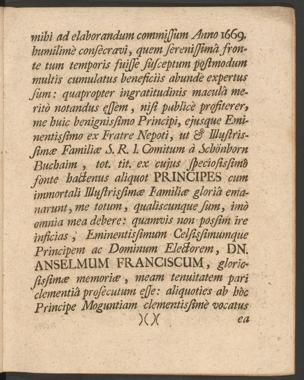 mihi ad elaborandum commissum Anno 1669.
humilimè consecravi, quem serenissimâ fron-
te tum temporis fuisse susceptum postmodum
multis cumulatus beneficiis abundè expertus
sum: quapropter ingratitudinis maculâ me-
ritò notandus essem, nisi publicè profiterer,
me huic benignissimo Principi, ejusque Emi-
nentissimo ex Fratre Nepoti, ut & Illustris-
simæ Familiæ S. R. I. Comitum à Schönborn
Buchaim, tot. tit. ex cujus speciosissimo
fonte hactenus aliquot PRINCIPES cum
immortali Illustrissimæ Familiæ gloriâ ema-
narunt, me totum, qualiscunque sum, imò
omnia mea debere: quamvis non possim ire
inficias, Eminentissimum Celsissimumque
Principem ac Dominum Electorem, DN.
ANSELMUM FRANCISCUM, glorio-
sissimæ memoriæ, meam tenuitatem pari
clementiâ prosecutum esse: aliquoties ab hôc
Principe Moguntiam clementissimè vocatus
)( )(
ea